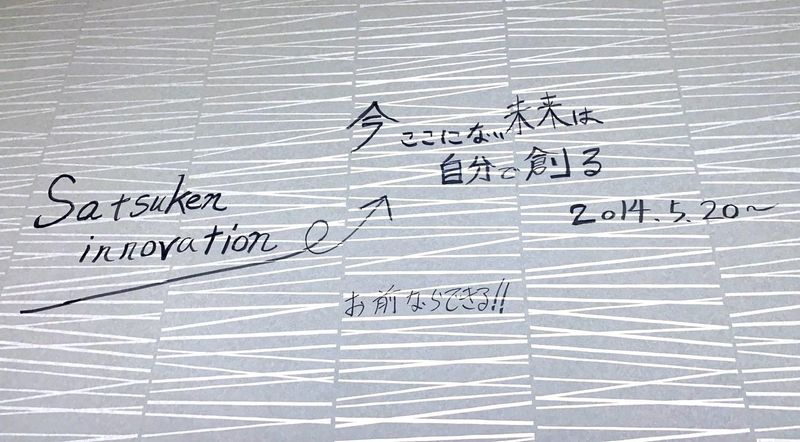 今ここにない未来は
自分で創る
Satsuken
innovation
2014.5.20~
お前ならできる!!